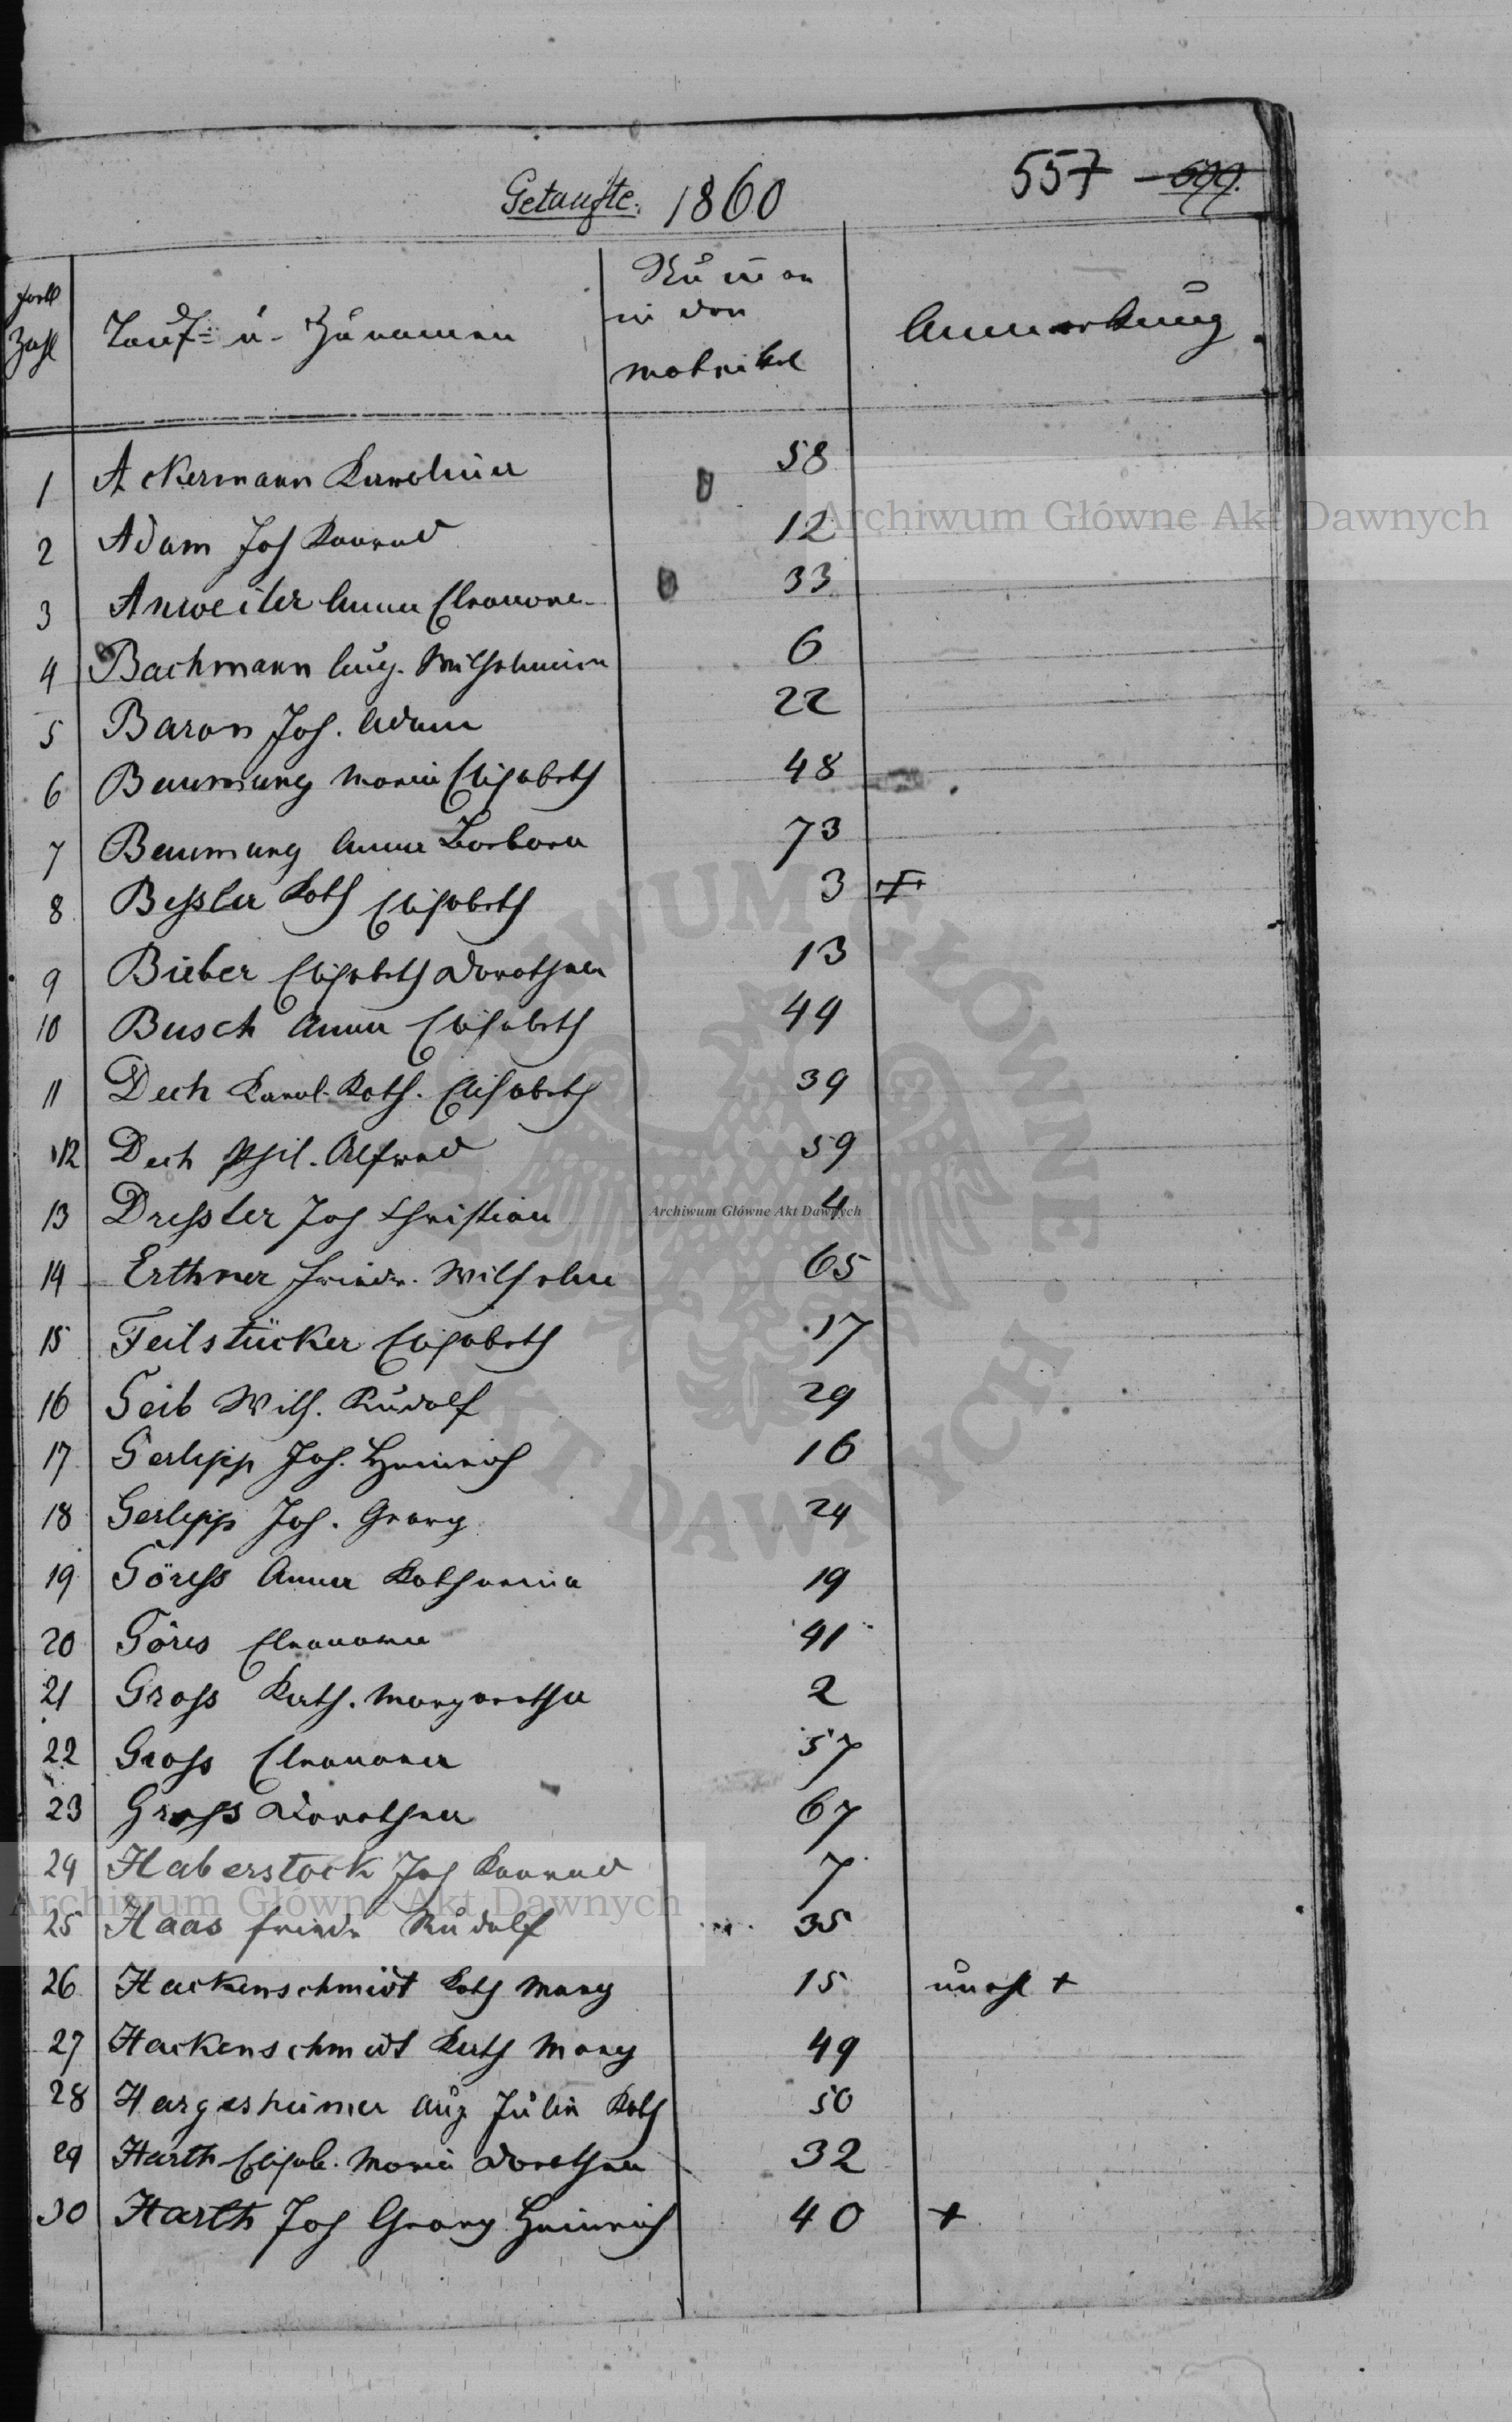 Getaufte. 1860
557 - 599.
Fortl
Zahl
Tauf- u. Zunamen
Numer
in der
Matrikel
Anmerkung
1 Ackermann Karolina 58
2 Adam Joh Konrad 12
3 Anweiler Anna Eleonore 33
4 Bachmann Aug. Wilhelmine 6
5 Baron Joh. Adam 22
6 Baumung Maria Elisabeth 48
7 Baumung Anna Barbara 73
8 Bessler Kath Elisabeth 3 +
9 Bieber Elisabeth Dorothea 13
10 Busch Anna Elisabeth 44
11 Dech Karol. Kath. Elisabeth 39
12 Dech Phil. Alfred 59
13 Dressler Joh Christian 4
14 Erthner Friedr. Wilhelm 65
15 Feilstücker Elisabeth 17
16 Geib Wilh. Rudolf 29
17 Gerlipp Joh. Heinrich 16
18 Gerlipp Joh. Georg 24
19 Göress Anna Katharina 19
20 Göres Eleonora 41
21 Gross Kath. Margaretha 2
22 Gross Eleonora 57
23 Gross Dorothea 67
24 Haberstock Joh Konrad 7
25 Haas Friedr Rudolf 35
26 Hackenschmidt Kath Marg 15 unehl +
27 Hackenschmidt Kath Marg 49
28 Hargesheimer Aug Julia Kath 50
29 Harth Elisab. Maria Dorothea 32
30 Harth Joh Georg Heinrich 40 +
Archiwum Główne Akt Dawnych
Archiwum Główne Akt Dawnych
Archiwum Główne Akt Dawnych